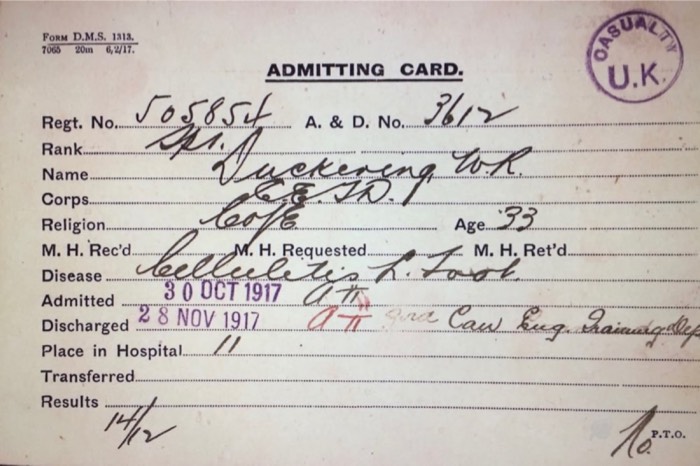 FORM D.M.S. 1313.
7065 20m 6/2/17.
CASUALTY
U.K.
ADMITTING CARD.
Regt. No. 505854 A. & D. No. 3612
Rank Spr.
Name Duckering W.R.
Corps C.E.T.D.
Religion C of E Age 33
M. H. Rec'd M. H. Requested M. H. Ret'd
Disease Cellulitis L. Foot
Admitted 30 OCT 1917 A II
Discharged 28 NOV 1917 A II Can Eng. Training Dep
Place in Hospital 11
Transferred
Results
14/12
P.T.O.